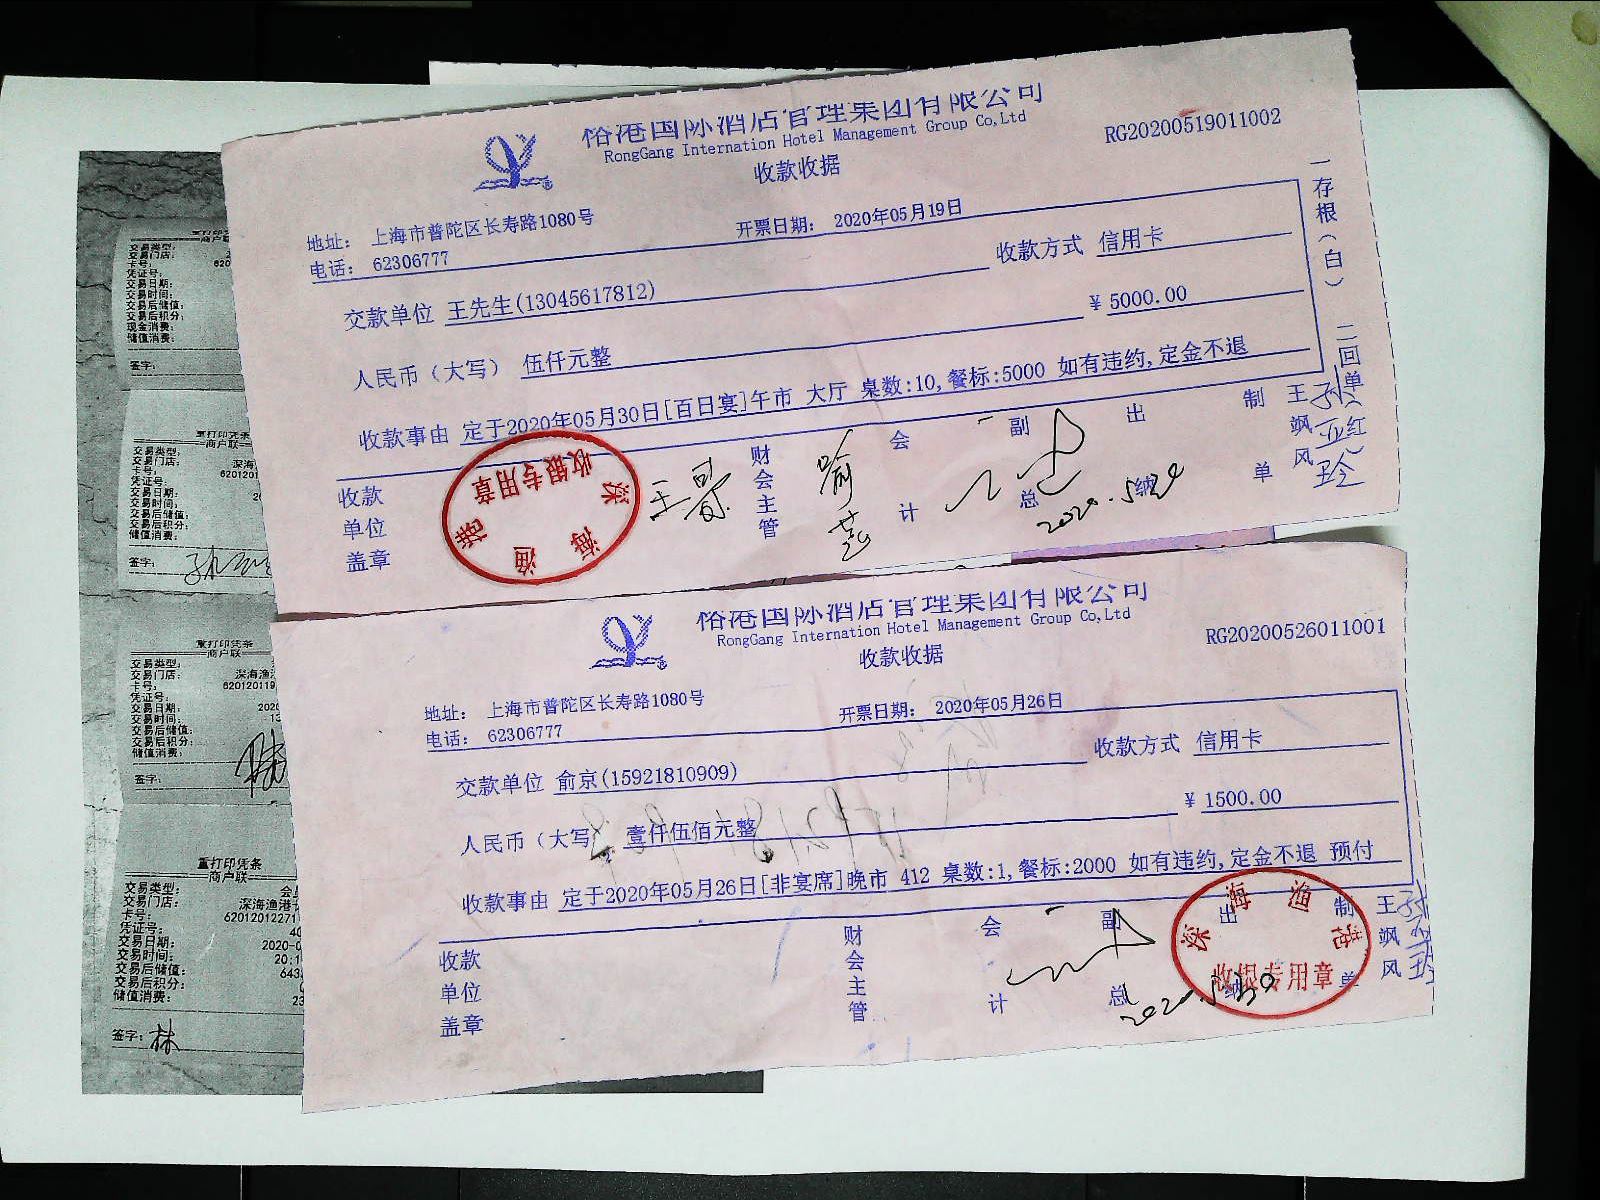 裕港国际酒店管理集团有限公司
RongGang Internation Hotel Management Group Co,Ltd
RG20200519011002
收款收据
地址： 上海市普陀区长寿路1080号
开票日期： 2020年05月19日
电话： 62306777
收款方式 信用卡
交款单位 王先生(13045617812)
¥ 5000.00
人民币（大写） 伍仟元整
收款事由 定于2020年05月30日[百日宴]午市 大厅 桌数:10,餐标:5000 如有违约,定金不退
一存根（白） 二回单（红）
收款单位盖章
财会主管
会计
副总
出纳
制单
王飒风
深海渔港
收银专用章
裕港国际酒店管理集团有限公司
RongGang Internation Hotel Management Group Co,Ltd
RG20200526011001
收款收据
地址： 上海市普陀区长寿路1080号
开票日期： 2020年05月26日
电话： 62306777
收款方式 信用卡
交款单位 俞京(15921810909)
¥ 1500.00
人民币（大写） 壹仟伍佰元整
收款事由 定于2020年05月26日[非宴席]晚市 412 桌数:1,餐标:2000 如有违约,定金不退 预付
收款单位盖章
财会主管
会计
副总
出纳
制单
王飒风
深海渔港
收银专用章
商户联
交易类型：
交易门店：
卡号： 620
凭证号：
交易日期：
交易时间：
交易后储值：
交易后积分：
现金消费：
储值消费：
签字：
重打印凭条
商户联
交易类型：
交易门店： 深海
卡号： 6201201
凭证号：
交易日期：
交易时间：
交易后储值：
交易后积分：
储值消费：
签字：
重打印凭条
商户联
交易类型：
交易门店： 深海渔
卡号： 620120119
凭证号：
交易日期： 202
交易时间： 13
交易后储值：
交易后积分：
储值消费：
签字：
重打印凭条
商户联
交易类型： 会
交易门店： 深海渔港
卡号： 62012012271
凭证号： 40
交易日期： 2020-0
交易时间： 20:1
交易后储值： 643
交易后积分：
储值消费： 23
签字： 林